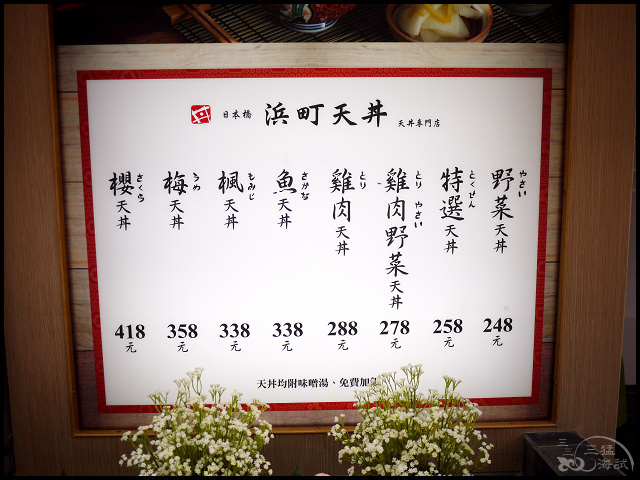 日本橋 浜町天丼 天丼専門店
野菜天丼 やさい 248元
特選天丼 とくせん 258元
雞肉野菜天丼 とり やさい 278元
雞肉天丼 とり 288元
魚天丼 さかな 338元
楓天丼 もみじ 338元
梅天丼 うめ 358元
櫻天丼 さくら 418元
天丼均附味噌湯、免費加
三三
三猛
海試